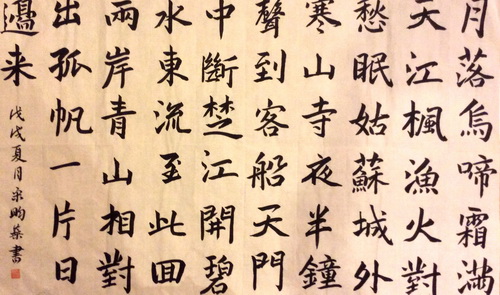 月落烏啼霜滿
天江楓漁火對
愁眠姑蘇城外
寒山寺夜半鐘
聲到客船天門
中斷楚江開碧
水東流至此回
兩岸青山相對
出孤帆一片日
邊来
戊戌夏月書